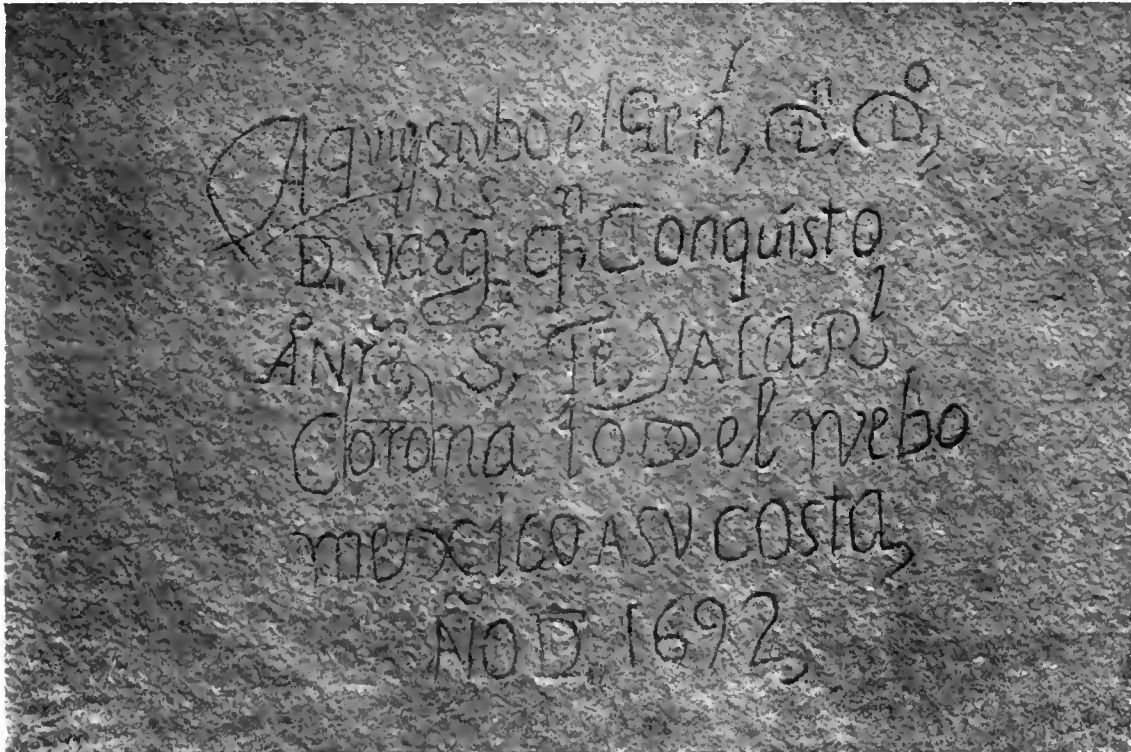 Aqui estubo el Genl, Dn, Do,
D, Vargs qn Conquisto
Ã Nrã S, Fe, Y A La Rl
Corona todo el nuebo
mexico A Su costa,
Año D, 1692,